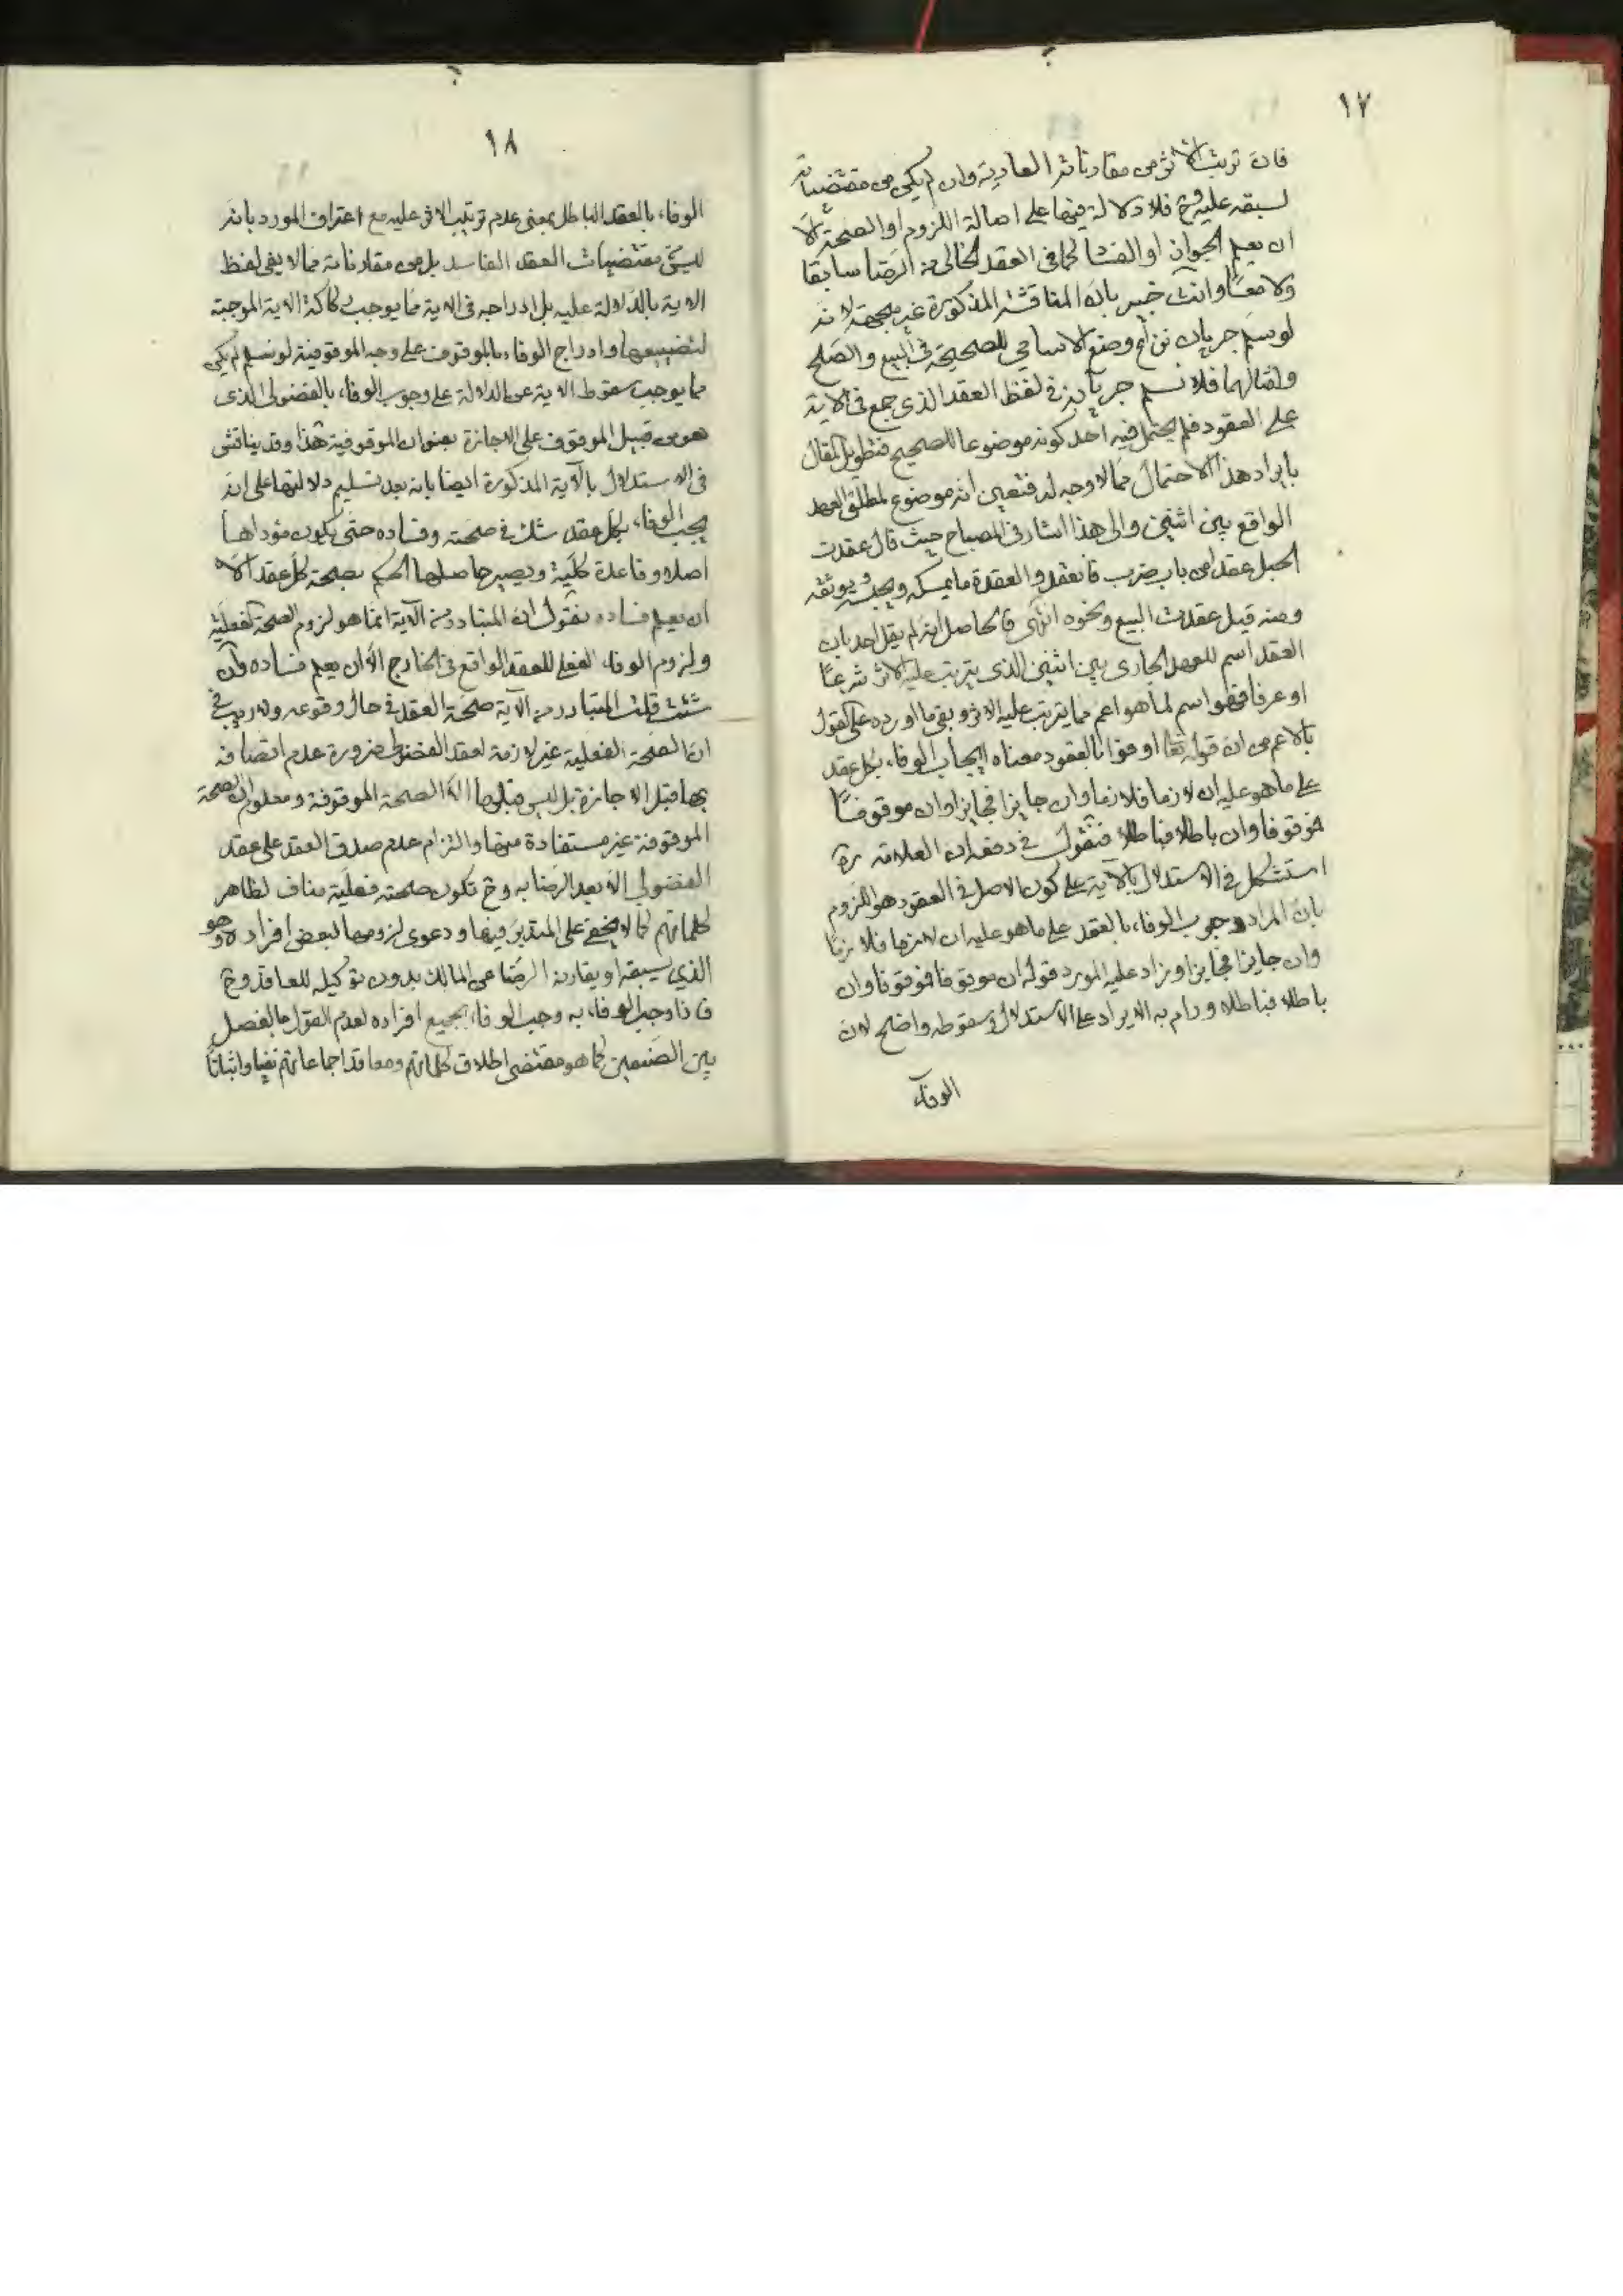 ١٧
فان ترتب الاثر من مقارناته العادية وان لم يكن من مقتضياته
لسبقه عليه وح فلا دلالة فيها على اصالة اللزوم او الصحة الا
ان يعلم الجواز او الفساد كما فى العقد الخالى من الرضا سابقا
ولا معا وانت خبير بان المناقشة المذكورة غير متجهة لانه
لو سلم جريان نزاع وضع الاسامي للصحيحة فى البيع والصلح
وامثالهما فلا نسلم جريانه فى لفظ العقد الذى جمع فى الاية
على العقود فلم يحتمل فيه احد كونه موضوعا للصحيح فتطويل المقال
بايراد هذا الاحتمال مما لا وجه له فتعين انه موضوع لمطلق العهد
الواقع بين اثنين والى هذا اشار فى المصباح حيث قال عقدت
الحبل عقدا من باب ضرب فانعقد والعقدة ما يمسكه ويحبسه ويوثقه
ومنه قيل عقدت البيع ونحوه انتهى فالحاصل انه لم يقل احد بان
العقد اسم للعهد الجارى بين اثنين الذى يترتب عليه الاثر شرعا
او عرفا فهو اسم لما هو اعم مما يترتب عليه الاثر وبقى ما اورده على القول
بالاعم من ان قوله تعا اوفوا بالعقود معناه ايجاب الوفاء بكل عقد
على ما هو عليه ان لازما فلازما وان جايزا فجايزا وان موقوفا
فموقوفا وان باطلا فباطلا فنقول فى دفعه ان العلامة ره
استشكل فى الاستدلال بالآية على كون الاصل فى العقود هو اللزوم
بان المراد وجوب الوفاء بالعقد على ما هو عليه ان لازما فلازما
وان جايزا فجايزا وزاد عليه المورد قوله ان موقوفا فموقوفا وان
باطلا فباطلا ورام به الايراد على الاستدلال وسقوطه واضح لان
الوفاء
١٨
الوفاء بالعقد الباطل بمعنى عدم ترتيب الاثر عليه مع اعتراف المورد بانه
ليس من مقتضيات العقد الفاسد بل من مقارناته مما لا يفى لفظ
الاية بالدلالة عليه بل ادراجه فى الاية مما يوجب ركاكة الاية الموجبة
لتضييعها وادراج الوفاء بالموقوف على وجه الموقوفية لو سلم لم يكن
مما يوجب سقوط الاية عن الدلالة على وجوب الوفاء بالفضولى الذى
هو من قبيل الموقوف على الاجازة بعنوان الموقوفية هذا وقد يناقش
فى الاستدلال بالآية المذكورة ايضا بانه بعد تسليم دلالتها على انه
يجب الوفاء بكل عقد شك فى صحته وفساده حتى يكون مؤداها
اصلا وقاعدة كلية ويصير حاصلها الحكم بصحة كل عقد الا
ان يعلم فساده نقول ان المتبادر من الآية انما هو لزوم الصحة الفعلية
ولزوم الوفاء الفعلى للعقد الواقع فى الخارج الا ان يعلم فساده وان
شئت قلت المتبادر من الآية صحة العقد فى حال وقوعه ولا ريب فى
ان الصحة الفعلية غير لازمة لعقد الفضولى ضرورة عدم اتصافه
بها قبل الاجازة بل ليس قبلها الا الصحة الموقوفة ومعلوم ان الصحة
الموقوفة غير مستفادة منها والتزام عدم صدق العقد على عقد
الفضولى الا بعد الرضا به وح تكون صحته فعلية مناف لظاهر
كلماتهم كما لا يخفى على المتدبر فيها ودعوى لزومها لبعض افراده وهو
الذي يسبقه او يقارنه الرضا من المالك بدون توكيله للعاقد وح
فاذا وجب الوفاء به وجب الوفاء بجميع افراده لعدم القول بالفصل
بين الضميمين كما هو مقتضى اطلاق كلماتهم ومعاقد اجماعاتهم نفيا واثباتا